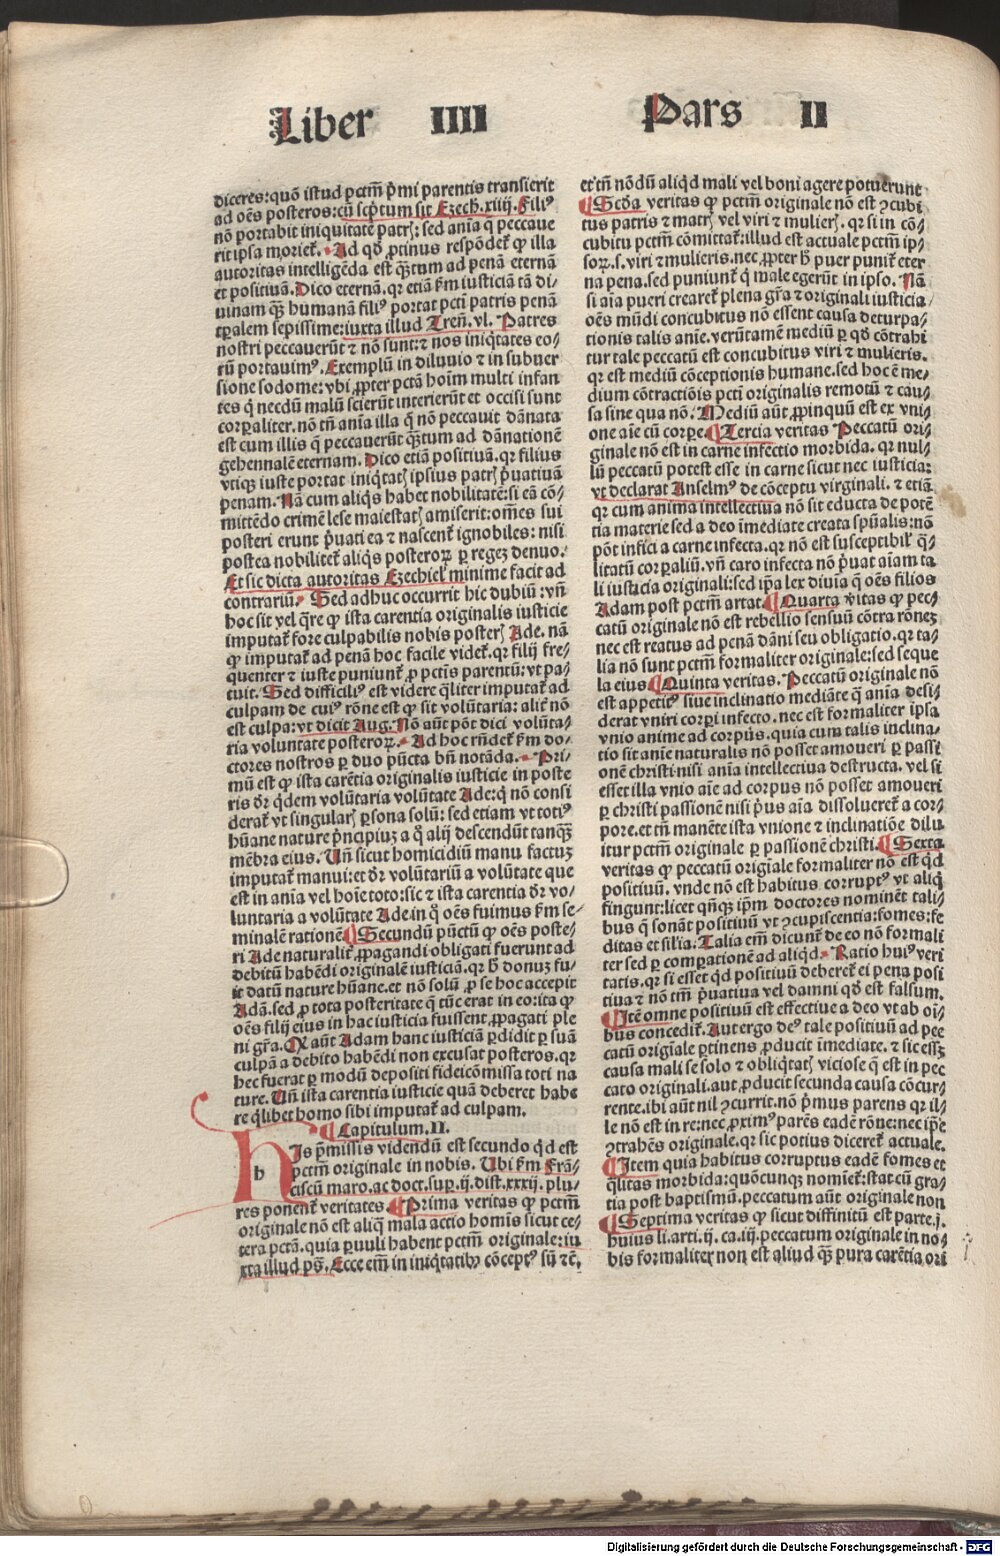 Liber IIII Pars II
diceres:quō istud pctm̄ p̄mi parentis transierit
ad oēs posteros:cū scp̄tum sit Ezech.xiiij.Filiꝰ
nō portabit iniquitatē patrꝭ: sed aīa q̄ peccaue
rit ipsa morietᷣ. Ad qd̓ ꝓtinus respōdetᷣ ꝙ illa
autoritas intelligēda est qᷓꝫtum ad penā eternā
et positiuā. Dico eternā.qꝛ etiā km̄ iusticiā tā di/
uinam qᷓꝫ humanā filiꝰ portat pctī patris penā
tꝑalem sepissime:iuxta illud Tren̄.vl. Patres
nostri peccauerūt ⁊ nō sunt:⁊ nos iniq̇tates eo/
rū portauimꝰ. Exemplū in diluuio ⁊ in subuer
sione sodome:vbi ꝓpter pctā hoīm multi infan
tes q̇ necdū malū scierūt interierūt et occisi sunt
corꝑaliter.nō tn̄ aīa illa q̄ nō peccauit dānata
est cum illis q̇ peccauerūt qᷓꝫtum ad dānationē
gehennalē eternam. Dico etiā positiuā.qꝛ filius
vtiqꝫ iuste portat iniq̇tatꝭ ipsius patrꝭ p̄uatiuā
penam. Nā cum aliq̇s habet nobilitatē:si eā cō/
mittēdo crimē lese maiestatꝭ amiserit:om̄es sui
posteri erunt p̄uati ea ⁊ nascentᷣ ignobiles: nisi
postea nobilitetᷣ aliq̇s posteroꝝ ꝑ regeꝫ denuo.
Et sic dicta autoritas Ezechielᷣ minime facit ad
contrariū. Sed adhuc occurrit hic dubiū :vn̄
hoc sit vel q̄re ꝙ ista carentia originalis iusticie
imputatᷣ fore culpabilis nobis posterꝭ Ade. nā
ꝙ imputatᷣ ad penā hoc facile videtᷣ. qꝛ filij fre/
quenter ⁊ iuste puniuntᷣ ꝓ pctīs parentū: vt pa/
tuit. Sed difficiliꝰ est videre qᷓliter imputatᷣ ad
culpam de cuiꝰ rōne est ꝙ sit volūtaria: alitᷣ nō
est culpa:vt dicit Aug. Nō aūt pōt dici volūta/
ria voluntate posteroꝝ. Ad hoc rn̄detᷣ km̄ do/
ctores nostros ꝑ duo pūcta bn̄ notāda. Pri/
mū est ꝙ ista carētia originalis iusticie in poste
ris dr̄ q̇dem volūtaria volūtate Ade:q̇ nō consi
deratᷣ vt singularꝭ ꝑsona solū: sed etiam vt totiꝰ
hūane nature p̄ncipiuꝫ a q̇ alij descendūt tanqᷓꝫ
mēbra eius. Un̄ sicut homicidiū manu factuꝫ
imputatᷣ manui:et dr̄ volūtariū a volūtate que
est in aīa vel hoīe toto:sic ⁊ ista carentia dr̄ vo/
luntaria a volūtate Ade in q̇ oēs fuimus km̄ se/
minalē rationē. Secundū pūctū ꝙ oēs poste/
ri Ade naturalitᷣ ꝓpagandi obligati fuerunt ad
debitū habēdi originalē iusticiā.qꝛ hᷣ donuꝫ fu/
it datū nature hūane.et nō solū ꝓ se hoc accepit
Adā.sed ꝓ tota posteritate q̄ tūc erat in eo:ita ꝙ
oēs filij eius in hac iusticia fuissent ꝓpagati ple
ni gr̄a. Qꝛ aūt Adam hanc iusticiā ꝑdidit ꝑ suā
culpā a debito habēdi non excusat posteros.qꝛ
hec fuerat ꝑ modū depositi fideicōmissa toti na
ture. Un̄ ista carentia iusticie quā deberet habe
re qᷓlibet homo sibi imputatᷣ ad culpam.
¶Capitulum.II.
h His p̄missis videndū est secundo q̇d est
pctm̄ originale in nobis. Ubi km̄ Frā/
ciscū maro.ac doct.suꝑ.ij.dist.xxxij. plu/
res ponentᷣ veritates. ¶Prima veritas ꝙ pctm̄
originale nō est aliq̄ mala actio homīs sicut ce/
tera pctā.quia ꝑuuli habent pctm̄ originale:iu
xta illud ps̄. Ecce em̄ in iniq̇tatibꝫ cōceptꝰ sū ⁊c̄.
et tn̄ nōdū aliq̇d mali vel boni agere potuerunt
¶Scd̓a veritas ꝙ pctm̄ originale nō est ꝯcubi
tus patris ⁊ matrꝭ vel viri ⁊ mulierꝭ. qꝛ si in cō/
cubitu pctm̄ cōmittatᷣ:illud est actuale pctm̄ ip/
soꝝ.s.viri ⁊ mulieris.nec ꝓpter hᷣ puer punitᷣ eter
na pena.sed puniuntᷣ q̇ male egerūt in ipso. Nā
si aīa pueri crearetᷣ plena gr̄a ⁊ originali iusticia/
oēs mūdi concubitus nō essent causa deturpa/
tionis talis aīe.verūtamē mediū ꝑ qd̓ cōtrahi
tur tale peccatū est concubitus viri ⁊ mulieris.
qꝛ est mediū cōceptionis humane.sed hoc ē me/
dium cōtractiōis pctī originalis remotū ⁊ cau/
sa sine qua nō. Mediū aūt ꝓpinquū est ex vni/
one aīe cū corꝑe. ¶Tercia veritas Peccatū ori/
ginale nō est in carne infectio morbida. qꝛ nul/
lū peccatū potest esse in carne sicut nec iusticia:
vt declarat Anselmꝰ de cōceptu virginali. ⁊ etiā
qꝛ cum anima intellectiua nō sit educta de potē
tia materie sed a deo īmediate creata spūalis:nō
pōt infici a carne infecta.qꝛ nō est susceptibilᷣ q̄/
litatū corꝑaliū.vn̄ caro infecta nō p̄uat aīam ta
li iusticia originali:sed ip̄a lex diuīa q̄ oēs filios
Adam post pctm̄ artat. ¶Quarta v̓itas ꝙ pec/
catū originale nō est rebellio sensuū cōtra rōneꝫ
nec est reatus ad penā dāni seu obligatio.qꝛ ta/
lia nō sunt pctm̄ formaliter originale:sed seque
la eius ¶Quinta veritas. Peccatū originale nō
est appetitꝰ siue inclinatio mediāte q̄ aīa desi/
derat vniri corꝑi infecto.nec est formaliter ipsa
vnio anime ad corpus.quia cum talis inclina/
tio sit anīe naturalis nō posset amoueri ꝑ passi
onē christi:nisi anīa intellectiua destructa. vel si
esset illa vnio aīe ad corpus nō posset amoueri
ꝑ christi passionē nisi p̄us aīa dissolueretᷣ a cor/
pore.et tn̄ manēte ista vnione ⁊ inclinatiōe dilu
itur pctm̄ originale ꝑ passionē christi. ¶Sexta
veritas ꝙ peccatū origīale formaliter nō est q̇d
positiuū. vnde nō est habitus corruptꝰ vt aliq̇
fingunt:licet qn̄qꝫ ip̄m doctores nominēt tali/
bus q̄ sonāt positiuū vt ꝯcupiscentia:fomes:fe
ditas et sil̓ia. Talia em̄ dicuntᷣ de eo nō formali
ter sed ꝑ comꝑationē ad aliq̇d. Ratio huiꝰ veri
tatis.qꝛ si esset q̇d positiuū deberetᷣ ei pena posi
tiua ⁊ nō tm̄ p̄uatiua vel damni qd̓ est falsum.
¶Itē omne positiuū est effectiue a deo vt ab oī/
bus concedītᷣ. Aut ergo deꝰ tale positiuū ad pec
catū origīale ꝑtinens ꝓducit īmediate. ⁊ sic esſꝫ
causa mali se solo ⁊ obliq̇tatꝭ viciose q̄ est in pec
cato originali.aut ꝓducit secunda causa cōcur/
rente.ibi aūt nil ꝯcurrit.nō p̄mus parens qꝛ il/
le nō est in re:nec ꝓximꝰ parēs eadē rōne:nec ip̄e
ꝯtrahēs originale.qꝛ sic potius diceretᷣ actuale.
¶Item quia habitus corruptus eadē fomes et
q̄litas morbida:quōcunqꝫ noīetᷣ:stat cū gra/
tia post baptismū.peccatum aūt originale non
¶Septima veritas ꝙ sicut diffinitū est parte.j.
huius li.arti.ij. ca.iij.peccatum originale in no/
bis formaliter non est aliud qᷓꝫ pura carētia ori
Digitalisierung gefördert durch die Deutsche Forschungsgemeinschaft - DFG